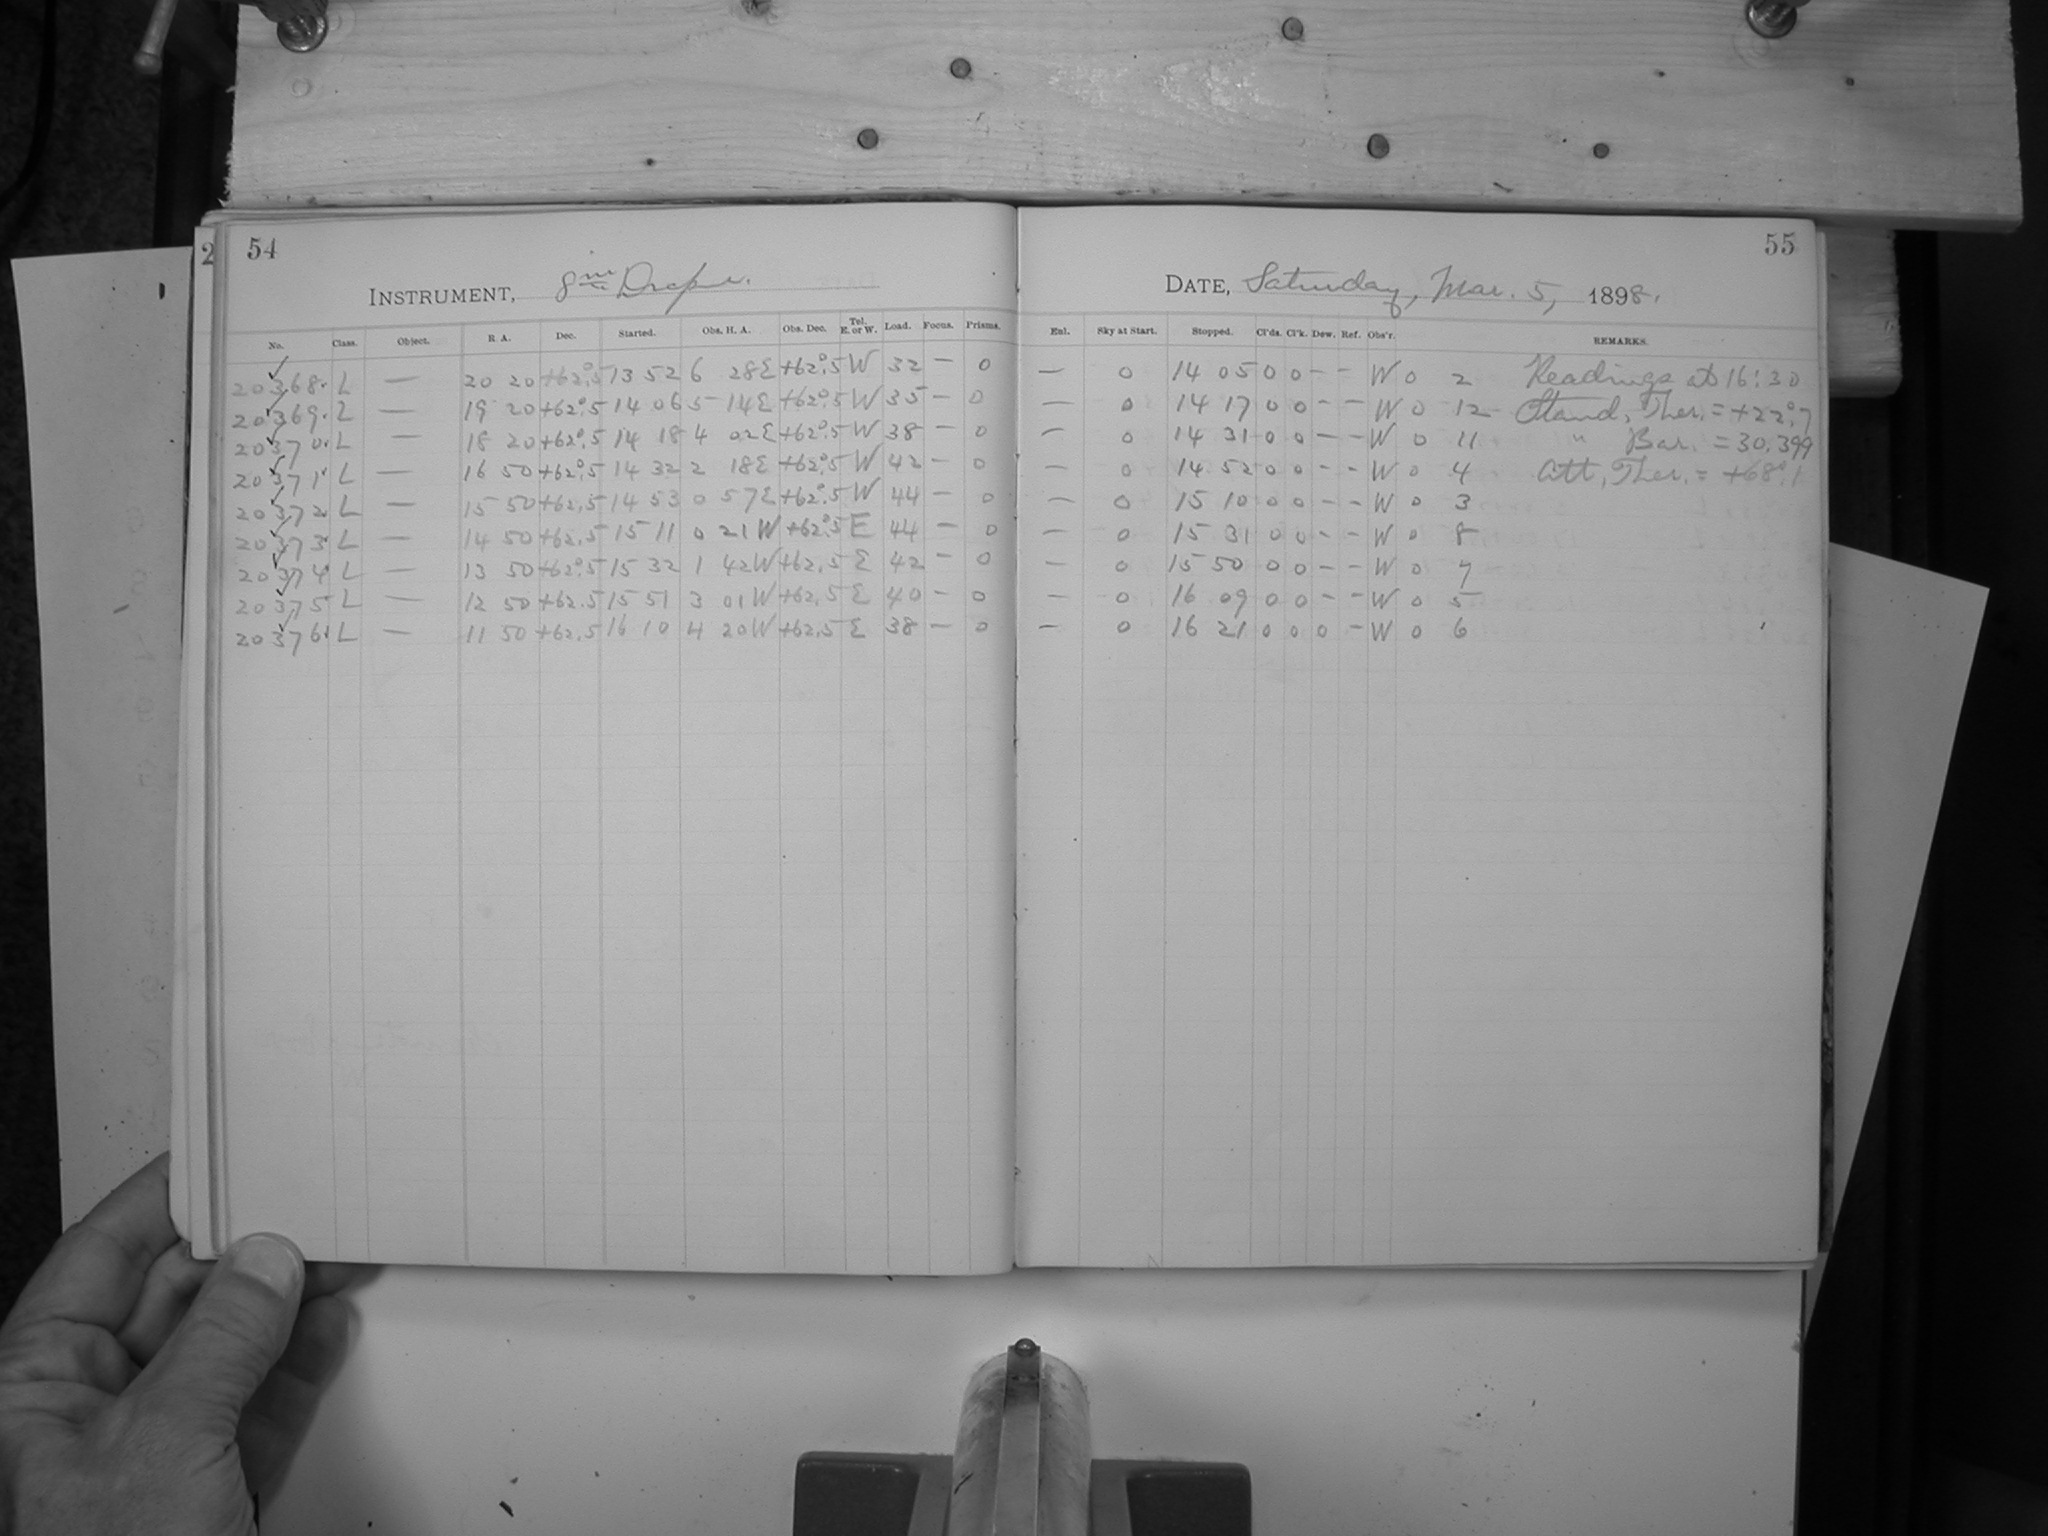 2
54
INSTRUMENT, 8in Draper.
No. Class. Object. R. A. Dec. Started. Obs. H. A. Obs. Dec. Tel. E. or W. Load. Focus. Prisms.
20368. L — 20 20 +62°.5 13 52 6 28E +62°.5 W 32 — 0
20369. L — 19 20 +62°.5 14 06 5 14E +62°.5 W 35 — 0
20370. L — 18 20 +62°.5 14 18 4 02E +62°.5 W 38 — 0
20371. L — 16 50 +62°.5 14 32 2 18E +62°.5 W 42 — 0
20372. L — 15 50 +62.5 14 53 0 57E +62°.5 W 44 — 0
20373. L — 14 50 +62.5 15 11 0 21W +62°.5 E 44 — 0
20374. L — 13 50 +62°.5 15 32 1 42W +62.5 E 42 — 0
20375 L — 12 50 +62.5 15 51 3 01W +62.5 E 40 — 0
20376. L — 11 50 +62.5 16 10 4 20W +62.5 E 38 — 0
55
DATE, Saturday, Mar. 5, 1898.
Enl. Sky at Start. Stopped. Cl'ds. Cl'k. Dew. Ref. Obs'r. REMARKS.
— 0 14 05 0 0 — — W 0 2 Readings at 16:30
— 0 14 17 0 0 — — W 0 12 Stand, Ther. = +22°.7
— 0 14 31 0 0 — — W 0 11 " Bar. = 30.399
— 0 14 52 0 0 — — W 0 4 Att, Ther. = +68°.1
— 0 15 10 0 0 — — W 0 3
— 0 15 31 0 0 — — W 0 8
— 0 15 50 0 0 — — W 0 7
— 0 16 09 0 0 — — W 0 5
— 0 16 21 0 0 0 — W 0 6